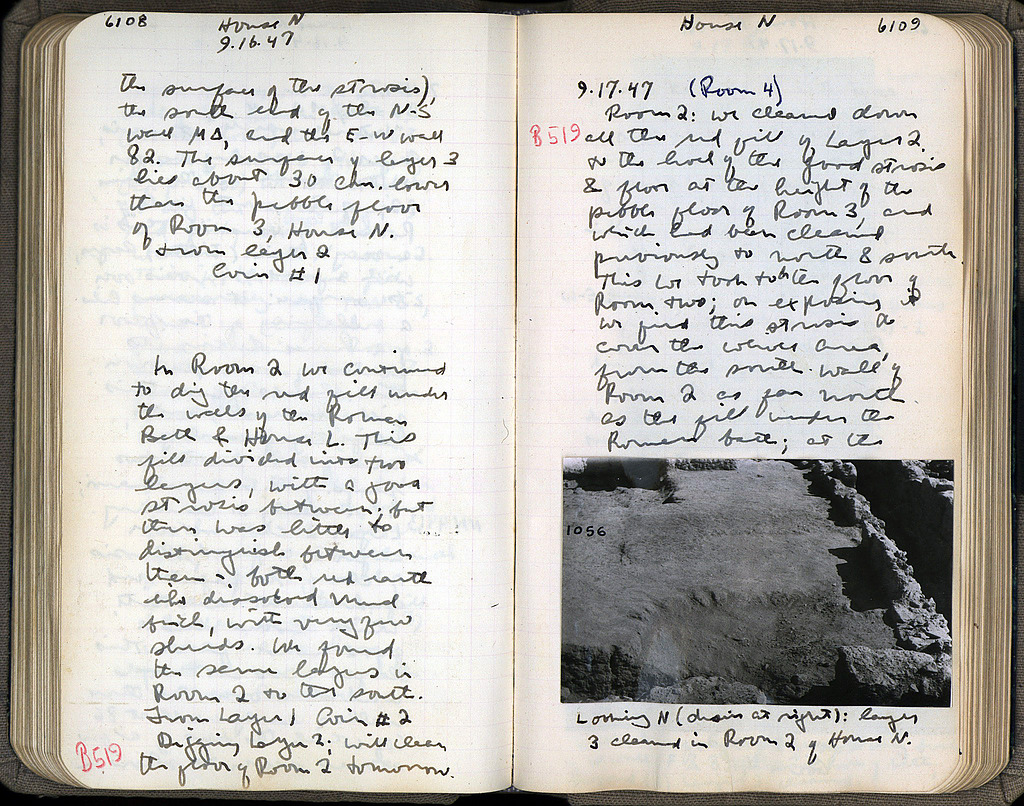 6108
House N
9.16.47
the surface of the strosis),
the south end of the N-S
wall MΔ, and the E-W wall
82. The surface of layer 3
lies about 30 cm. lower
than the pebble floor
of Room 3, House N.
From layer 2
Coin #1
In Room 2 we continued
to dig the red fill under
the walls of the Roman
Bath & House L. This
fill divided into two
layers, with a good
strosis between; but
there was little to
distinguish between
them - both red earth
like dissolved mud
brick, with very few
sherds. We found
the same layers in
Room 2 to the south.
From Layer 1 Coin #2
B519
Digging Layer 2; will clean
the floor of Room 2 tomorrow.
House N
6109
9.17.47 (Room 4)
Room 2: we cleaned down
B519
all the red fill of Layer 2
to the level of the good strosis
& floor at the height of the
pebble floor of Room 3, and
which had been cleaned
previously to north & south.
This we took to be the floor of
Room two; on exposing it
we find this strosis to
cover the whole area,
from the south wall of
Room 2 as far north
as the fill under the
Roman bath; at the
1056
Looking N (drain at right): layer
3 cleaned in Room 2 of House N.